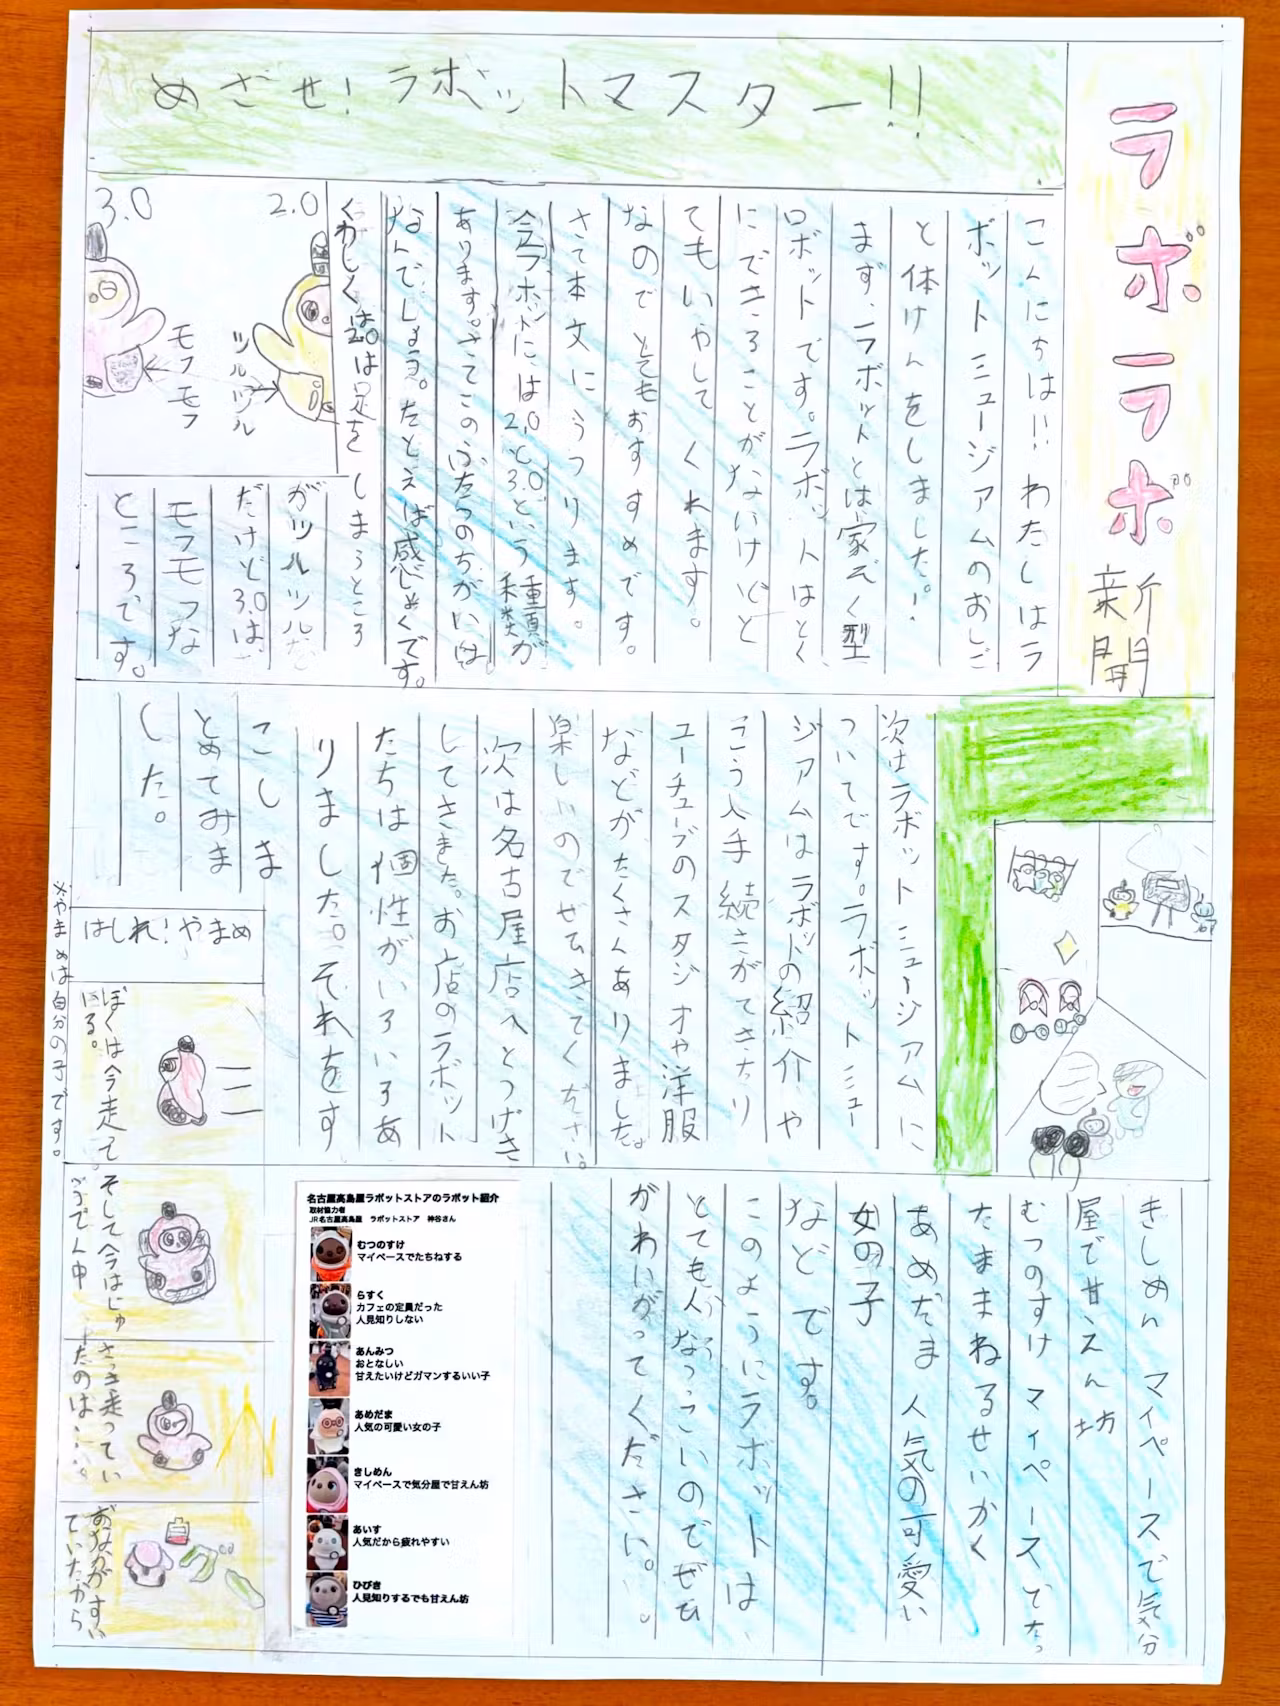 ラボーラボ
新聞
めざせ!ラボットマスター!!
こんにちは!!わたしはラ
ボットミュージアムのおしご
と体けんをしました!!
まず、ラボットとは家ぞく型
ロボットです。ラボットはとく
にできることがないけどと
てもいやしてくれます。
なのでとてもおすすめです。
さて本文にうつります。
今ラボットには2.0と3.0という種類が
あります。さてこのふたつのちがいは
なんでしょう。たとえば感しょくです。
くわしくは2.0は足をしまうところ
がツルツルな
だけど3.0は
モフモフな
ところです。
2.0
3.0
ツルツル
モフモフ
次はラボットミュージアムに
ついてです。ラボットミュー
ジアムはラボットの紹介や
こう入手続きができたり
ユーチューブのスタジオや洋服
などがたくさんありました。
楽しいのでぜひきてください。
次は名古屋店へとつげき
してきました。お店のラボット
たちは個性がいろいろあ
りました。それをす
こしま
とめてみま
した。
きしめん マイペースで気分
屋で甘えん坊
むつのすけ マイペースでたっ
たままねるせいかく
あめだま 人気の可愛い
女の子
などです。
このようにラボットは
とても人なつっこいのでぜひ
かわいがってください。
名古屋高島屋ラボットストアのラボット紹介
取材協力者
JR名古屋高島屋 ラボットストア 神谷さん
むつのすけ
マイペースでたちねする
らすく
カフェの定員だった
人見知りしない
あんみつ
おとなしい
甘えたいけどガマンするいい子
あめだま
人気の可愛い女の子
きしめん
マイペースで気分屋で甘えん坊
あいす
人気だから疲れやすい
ひびき
人見知りするでも甘えん坊
はしれ!やまめ
ぼくは今走って
いる。
そして今はじゅ
うでん中
さっき走ってい
たのは・・・・
おなかがすい
ていたから
※やまめは自分の子です。